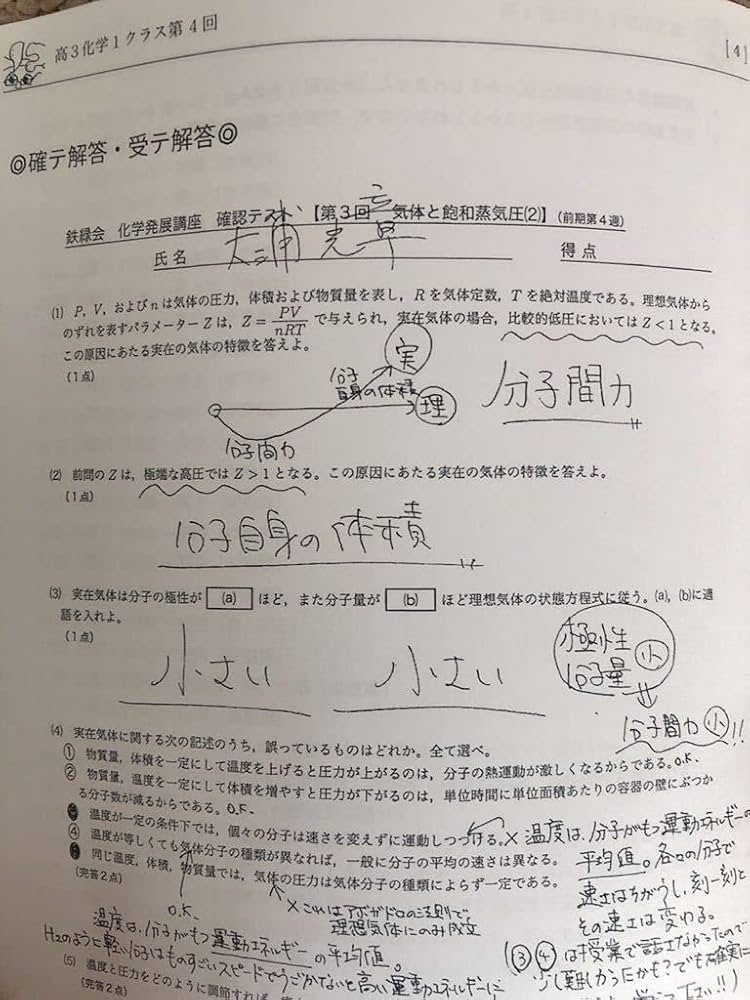 高3化学1クラス第4回
[4]
◎確テ解答・受テ解答◎
鉄緑会 化学発展講座 確認テスト 【第3回 気体と飽和蒸気圧(2)】 (前期第4週)
氏名
得点
(1) P, V, およびnは気体の圧力, 体積および物質量を表し, Rを気体定数, Tを絶対温度である。理想気体から
のずれを表すパラメーターZは, Z = PV/nRT で与えられ, 実在気体の場合, 比較的低圧においてはZ<1となる。
この原因にあたる実在の気体の特徴を答えよ。
(1点)
実
分子
自身の体積
理
分子間力
分子間力
(2) 前問のZは, 極端な高圧ではZ>1となる。この原因にあたる実在の気体の特徴を答えよ。
(1点)
分子自身の体積
(3) 実在気体は分子の極性が (a) ほど, また分子量が (b) ほど理想気体の状態方程式に従う。(a), (b)に適
語を入れよ。
(1点)
小さい 小さい
極性
分子量 小
分子間力 小!!
(4) 実在気体に関する次の記述のうち, 誤っているものはどれか。全て選べ。
① 物質量, 体積を一定にして温度を上げると圧力が上がるのは, 分子の熱運動が激しくなるからである。O.K.
② 物質量, 温度を一定にして体積を増やすと圧力が下がるのは, 単位時間に単位面積あたりの容器の壁にぶつか
る分子数が減るからである。O.K.
温度が一定の条件下では, 個々の分子は速さを変えずに運動しつづける。×
④ 温度が等しくても気体分子の種類が異なれば, 一般に分子の平均の速さは異なる。
同じ温度, 体積, 物質量では, 気体の圧力は気体分子の種類によらず一定である。
(完答2点)
温度は、分子がもつ運動エネルギーの
平均値。各々の分子で
速さはちがうし、刻一刻と
その速さは変わる。
O.K.
×これはアボガドロの法則で、
理想気体にのみ成立
温度は、分子がもつ運動エネルギーの平均値。
H₂のように軽い分子はものすごいスピードでうごかないと高い運動エネルギーに
(③④は授業で話さなかったので
少し難しかったかも?でも確実に
(5) 温度と圧力をどのように調節すれば,
(完答2点)